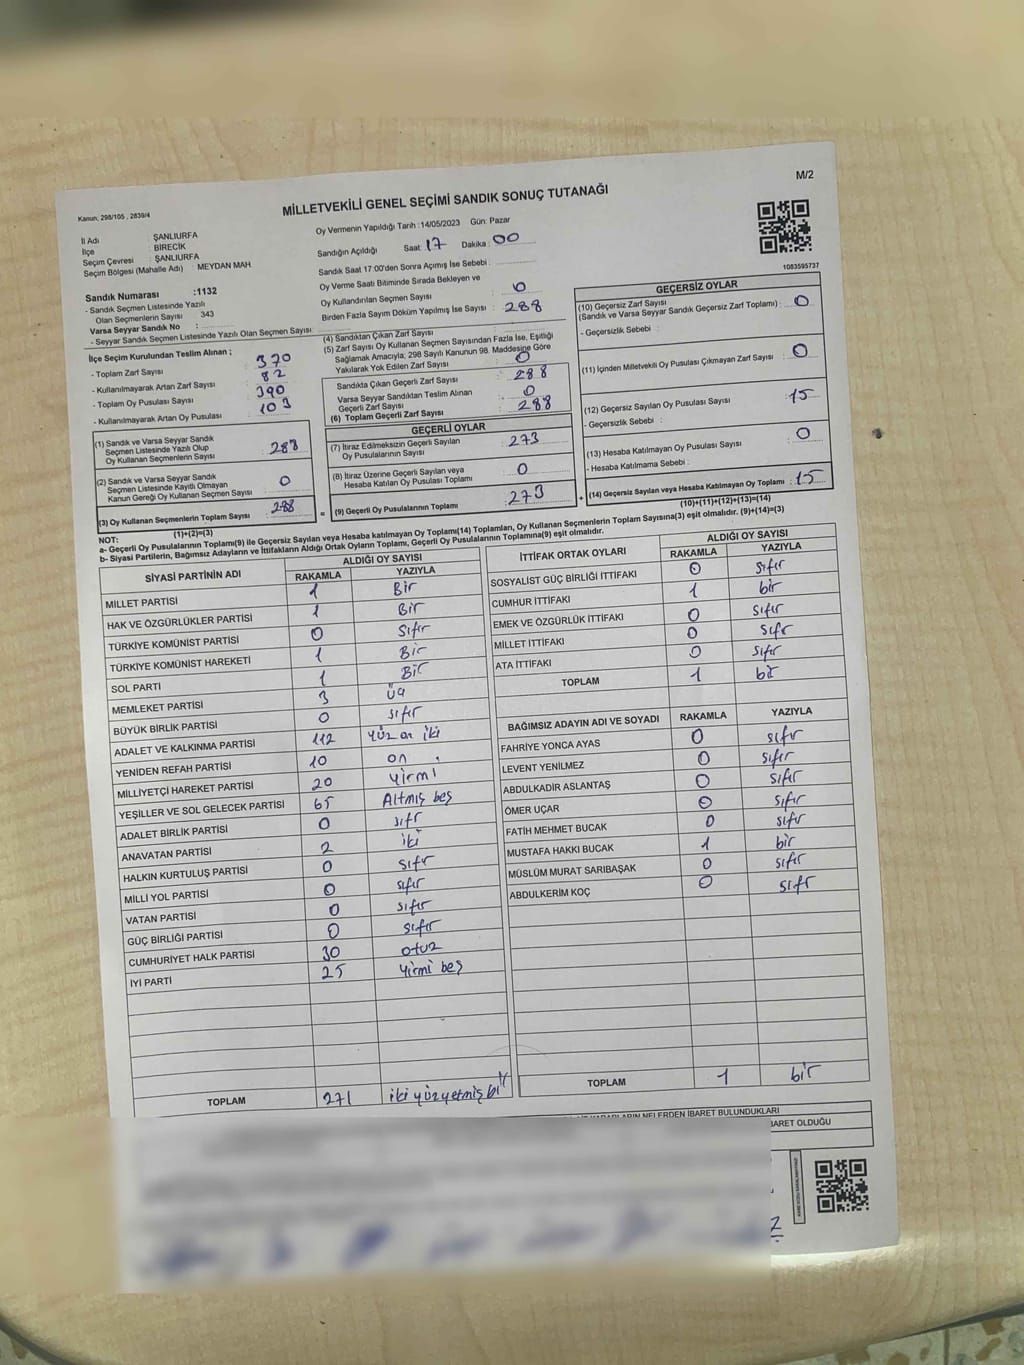 M/2
Kanun: 298/105 , 2839/4
MİLLETVEKİLİ GENEL SEÇİMİ SANDIK SONUÇ TUTANAĞI
İl Adı : ŞANLIURFA
İlçe : BİRECİK
Seçim Çevresi : ŞANLIURFA
Seçim Bölgesi (Mahalle Adı) MEYDAN MAH
Oy Vermenin Yapıldığı Tarih :14/05/2023 Gün: Pazar
Sandığın Açıldığı Saat 17 Dakika : 00
Sandık Saat 17:00'den Sonra Açımış İse Sebebi :
Oy Verme Saati Bitiminde Sırada Bekleyen ve
Oy Kullandırılan Seçmen Sayısı : 0
Birden Fazla Sayım Döküm Yapılmış İse Sayısı : 288
1083595737
Sandık Numarası :1132
- Sandık Seçmen Listesinde Yazılı
Olan Seçmenlerin Sayısı 343
Varsa Seyyar Sandık No :
- Seyyar Sandık Seçmen Listesinde Yazılı Olan Seçmen Sayısı:
İlçe Seçim Kurulundan Teslim Alınan ;
- Toplam Zarf Sayısı : 370
- Kullanılmayarak Artan Zarf Sayısı : 82
- Toplam Oy Pusulası Sayısı : 390
- Kullanılmayarak Artan Oy Pusulası : 103
(1) Sandık ve Varsa Seyyar Sandık
Seçmen Listesinde Yazılı Olup
Oy Kullanan Seçmenlerin Sayısı : 288
(2) Sandık ve Varsa Seyyar Sandık
Seçmen Listesinde Kayıtlı Olmayan
Kanun Gereği Oy Kullanan Seçmen Sayısı : 0
(3) Oy Kullanan Seçmenlerin Toplam Sayısı : 288
(1)+(2)=(3)
(4) Sandıktan Çıkan Zarf Sayısı
(5) Zarf Sayısı Oy Kullanan Seçmen Sayısından Fazla İse, Eşitliği
Sağlamak Amacıyla; 298 Sayılı Kanunun 98. Maddesine Göre
Yakılarak Yok Edilen Zarf Sayısı : 0
Sandıkta Çıkan Geçerli Zarf Sayısı : 288
Varsa Seyyar Sandıktan Teslim Alınan
Geçerli Zarf Sayısı : 0
(6) Toplam Geçerli Zarf Sayısı : 288
GEÇERLİ OYLAR
(7) İtiraz Edilmeksizin Geçerli Sayılan
Oy Pusulalarının Sayısı : 273
(8) İtiraz Üzerine Geçerli Sayılan veya
Hesaba Katılan Oy Pusulası Toplamı : 0
= (9) Geçerli Oy Pusulalarının Toplamı : 273
GEÇERSİZ OYLAR
(10) Geçersiz Zarf Sayısı
(Sandık ve Varsa Seyyar Sandık Geçersiz Zarf Toplamı) : 0
- Geçersizlik Sebebi :
(11) İçinden Milletvekili Oy Pusulası Çıkmayan Zarf Sayısı : 0
(12) Geçersiz Sayılan Oy Pusulası Sayısı : 15
- Geçersizlik Sebebi :
(13) Hesaba Katılmayan Oy Pusulası Sayısı : 0
- Hesaba Katılmama Sebebi :
+ (14) Geçersiz Sayılan veya Hesaba Katılmayan Oy Toplamı : 15
(10)+(11)+(12)+(13)=(14)
NOT:
a- Geçerli Oy Pusulalarının Toplamı(9) ile Geçersiz Sayılan veya Hesaba katılmayan Oy Toplamı(14) Toplamları, Oy Kullanan Seçmenlerin Toplam Sayısına(3) eşit olmalıdır. (9)+(14)=(3)
b- Siyasi Partilerin, Bağımsız Adayların ve İttifakların Aldığı Ortak Oyların Toplamı, Geçerli Oy Pusulalarının Toplamına(9) eşit olmalıdır.
SİYASİ PARTİNİN ADI ALDIĞI OY SAYISI
RAKAMLA YAZIYLA
MİLLET PARTİSİ 1 Bir
HAK VE ÖZGÜRLÜKLER PARTİSİ 1 Bir
TÜRKİYE KOMÜNİST PARTİSİ 0 Sıfır
TÜRKİYE KOMÜNİST HAREKETİ 1 Bir
SOL PARTİ 1 Bir
MEMLEKET PARTİSİ 3 üç
BÜYÜK BİRLİK PARTİSİ 0 sıfır
ADALET VE KALKINMA PARTİSİ 112 yüz on iki
YENİDEN REFAH PARTİSİ 10 on
MİLLİYETÇİ HAREKET PARTİSİ 20 yirmi
YEŞİLLER VE SOL GELECEK PARTİSİ 65 Altmış beş
ADALET BİRLİK PARTİSİ 0 sıfır
ANAVATAN PARTİSİ 2 iki
HALKIN KURTULUŞ PARTİSİ 0 sıfır
MİLLİ YOL PARTİSİ 0 sıfır
VATAN PARTİSİ 0 sıfır
GÜÇ BİRLİĞİ PARTİSİ 0 sıfır
CUMHURİYET HALK PARTİSİ 30 otuz
İYİ PARTİ 25 yirmi beş
TOPLAM 271 iki yüzyetmiş bir
İTTİFAK ORTAK OYLARI ALDIĞI OY SAYISI
RAKAMLA YAZIYLA
SOSYALİST GÜÇ BİRLİĞİ İTTİFAKI 0 sıfır
CUMHUR İTTİFAKI 1 bir
EMEK VE ÖZGÜRLÜK İTTİFAKI 0 sıfır
MİLLET İTTİFAKI 0 sıfır
ATA İTTİFAKI 0 sıfır
TOPLAM 1 bir
BAĞIMSIZ ADAYIN ADI VE SOYADI RAKAMLA YAZIYLA
FAHRİYE YONCA AYAS 0 sıfır
LEVENT YENİLMEZ 0 sıfır
ABDULKADİR ASLANTAŞ 0 sıfır
ÖMER UÇAR 0 sıfır
FATİH MEHMET BUCAK 0 sıfır
MUSTAFA HAKKI BUCAK 1 bir
MÜSLÜM MURAT SARIBAŞAK 0 sıfır
ABDULKERİM KOÇ 0 sıfır
TOPLAM 1 bir
NELERDEN İBARET BULUNDUKLARI
BARET OLDUĞU